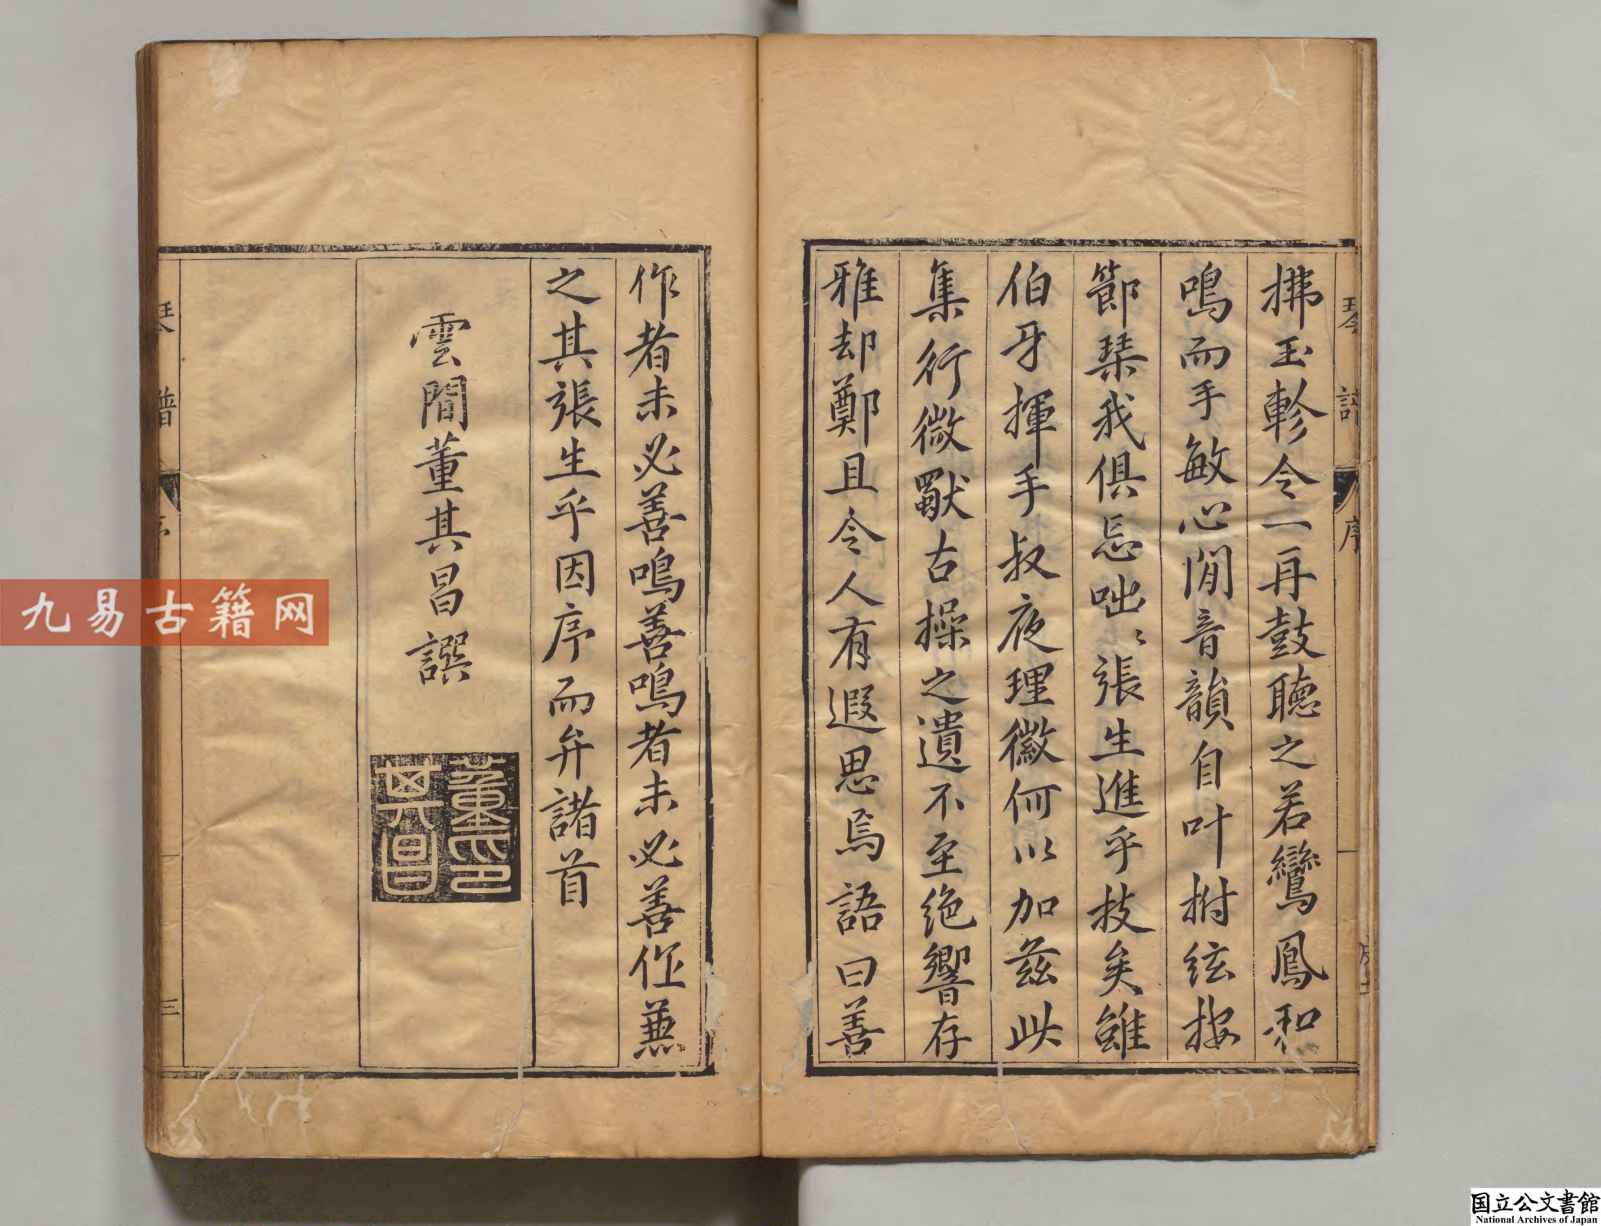 琴譜 序
拂玉軫令一再鼓聽之若鸞鳳和
鳴而手敏心閒音韻自叶拊絃按
節琹我俱忘咄〻張生進乎技矣雖
伯牙揮手叔夜理徽何以加茲此
集行微獸古操之遺不至絶響存
雅却鄭且令人有遐思焉語曰善
作者未必善鳴善鳴者未必善作兼
之其張生乎因序而弁諸首
雲間董其昌譔
董氏印
其昌
琴譜 序
三
九易古籍网
国立公文書館
National Archives of Japan